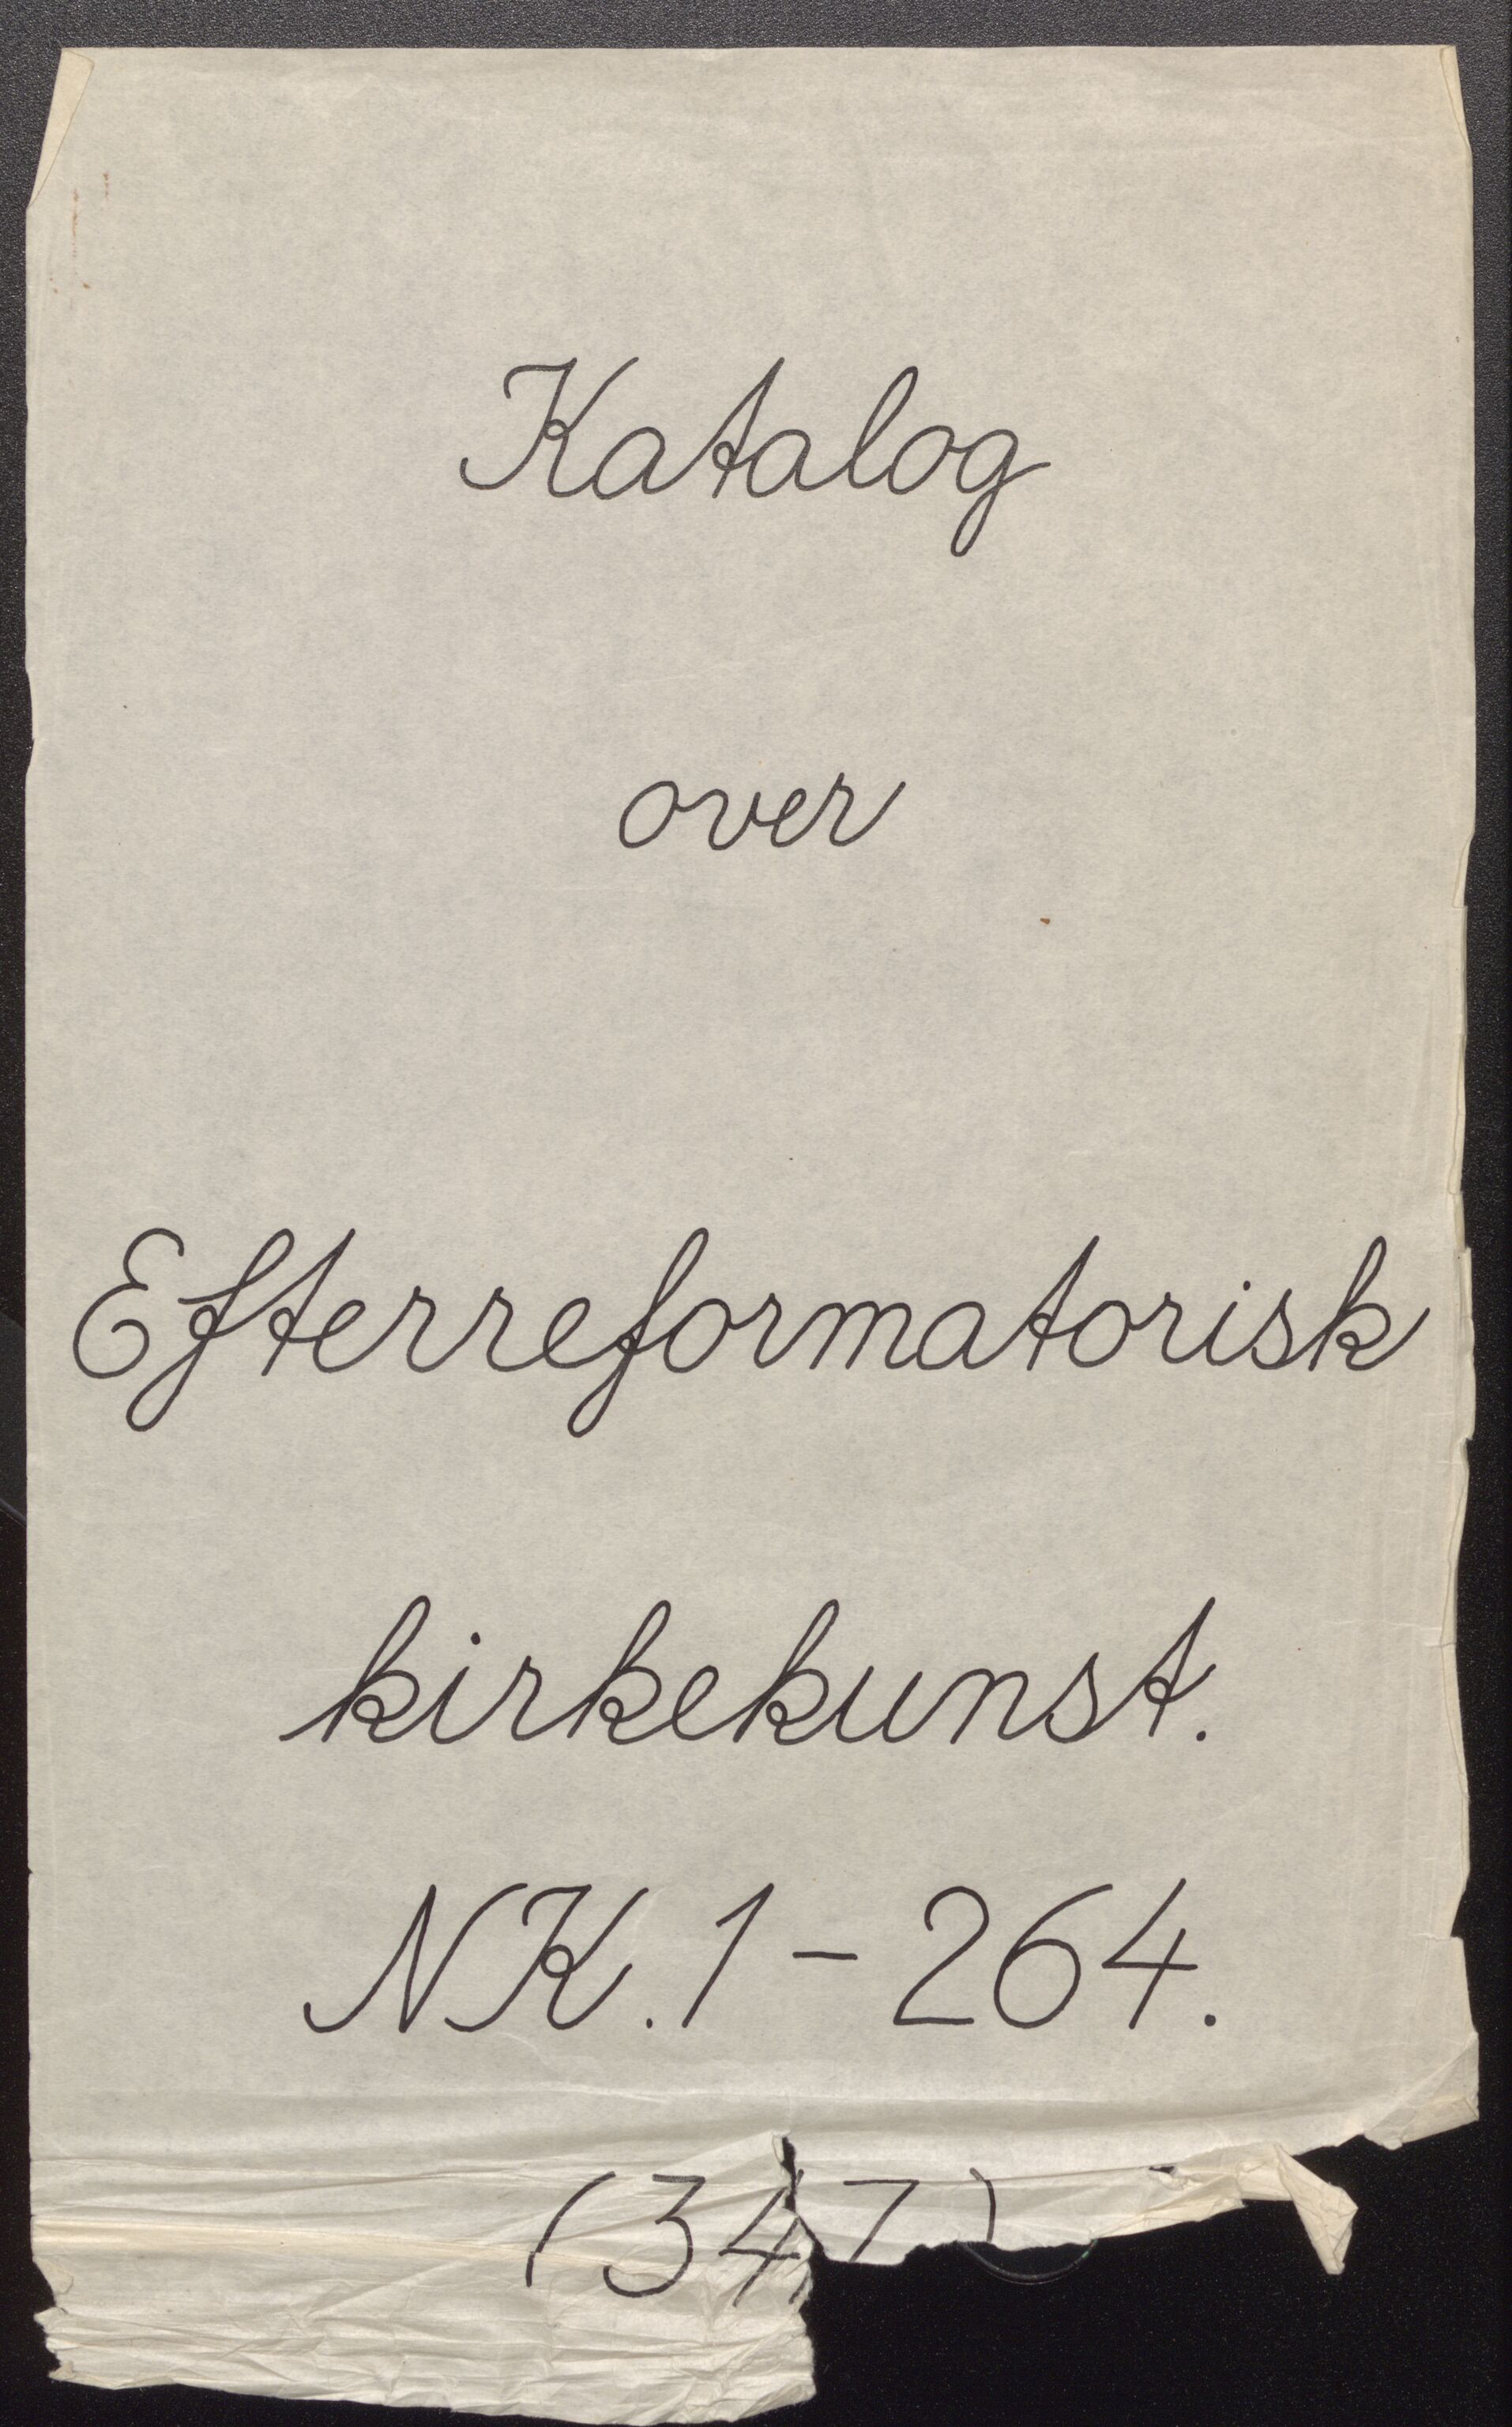 Katalog
over
Efterreformatorisk
kirkekunst.
NK. 1 - 264.
(347)